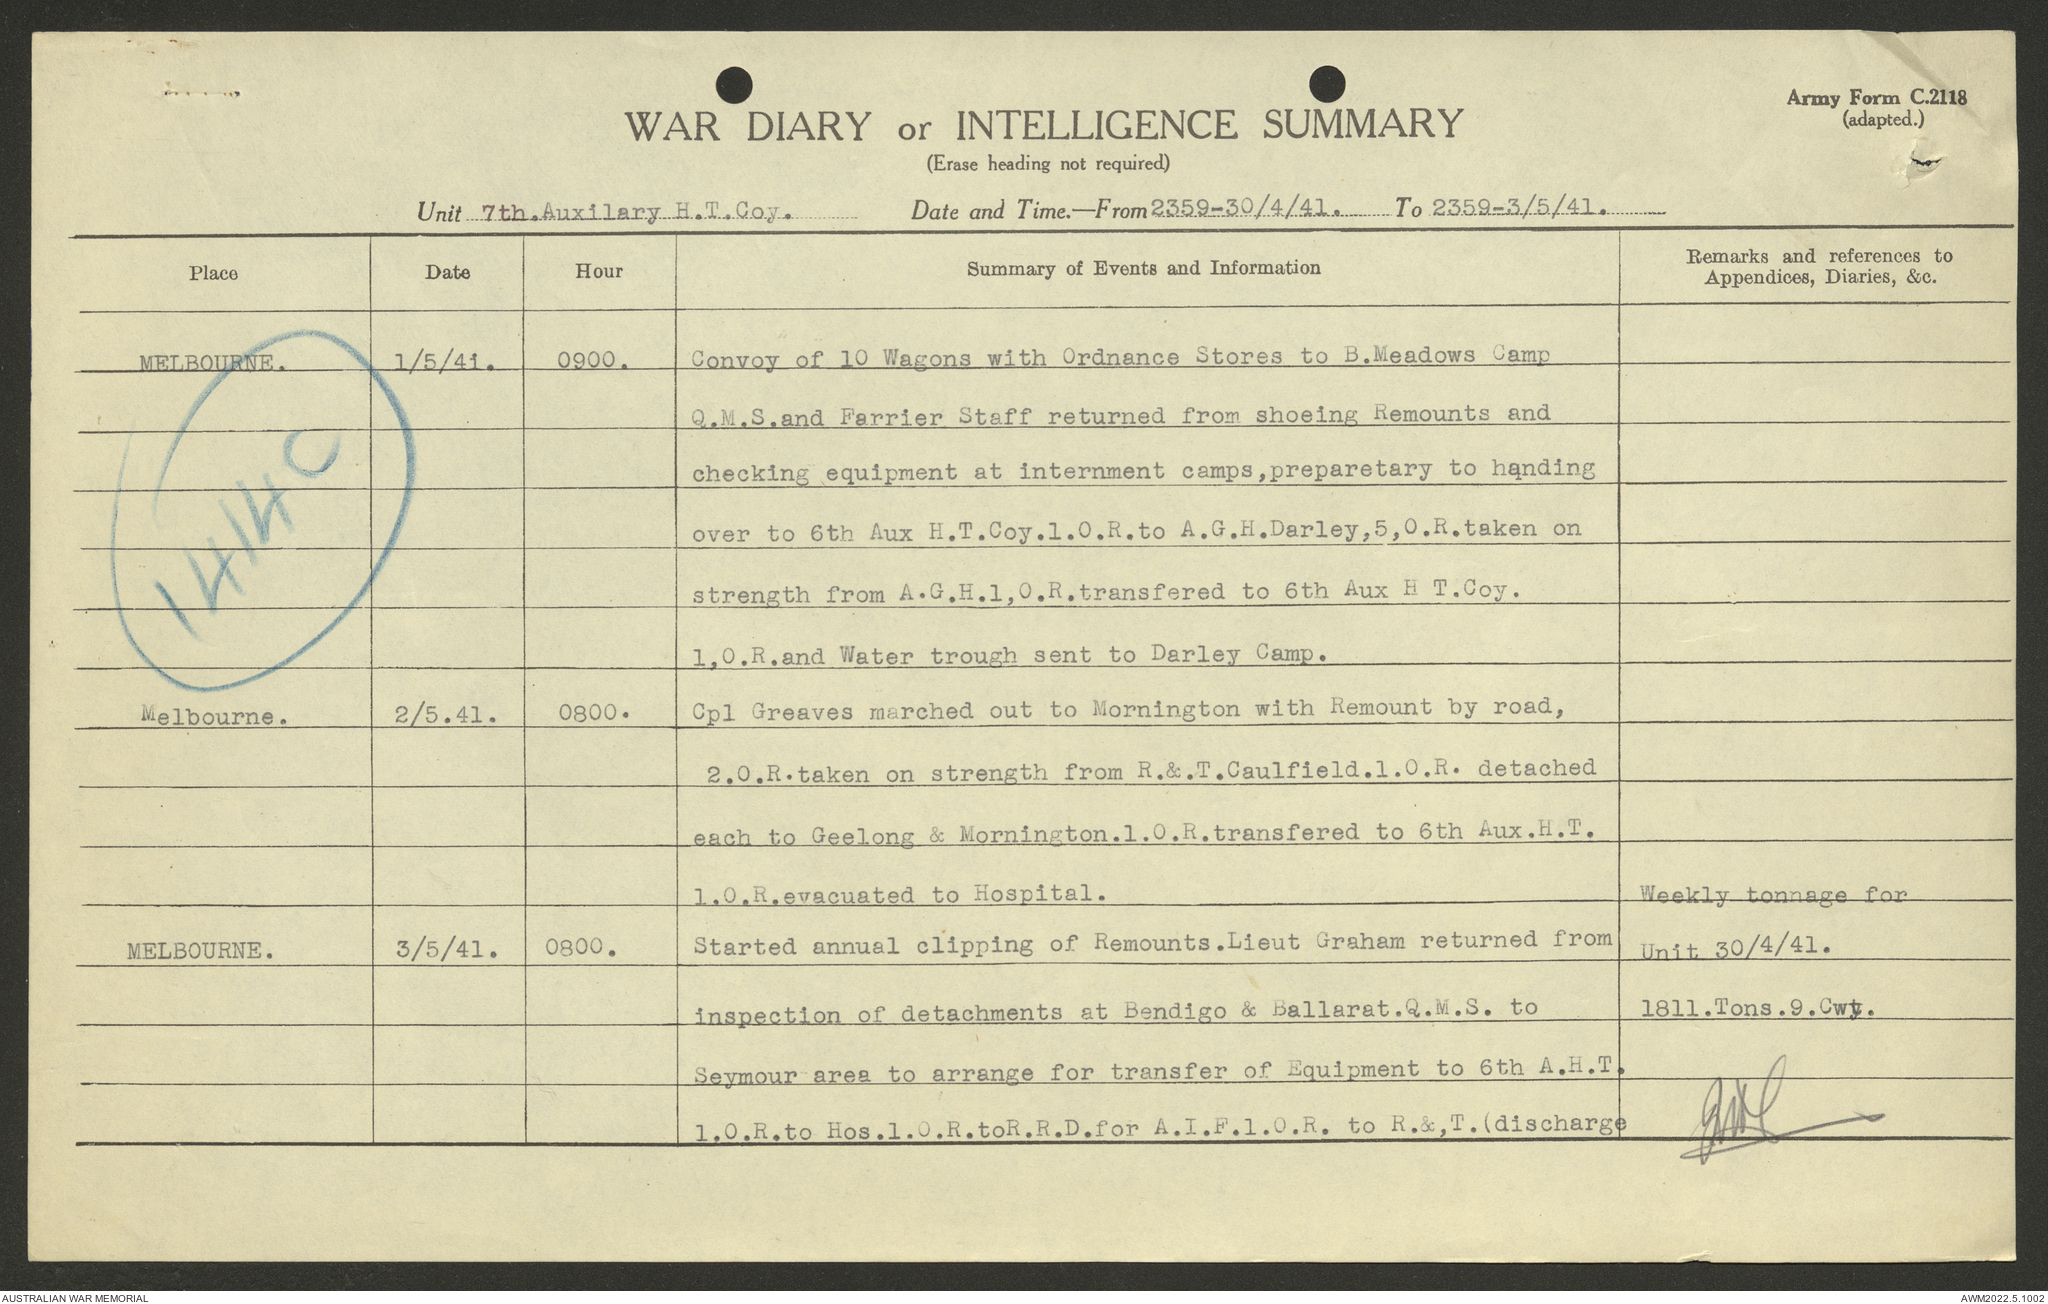 Army Form C.2118
(adapted.)
WAR DIARY or INTELLIGENCE SUMMARY
(Erase heading not required)
Unit 7th.Auxilary H.T.Coy. Date and Time.—From 2359-30/4/41. To 2359-3/5/41.
Place Date Hour Summary of Events and Information Remarks and references to
Appendices, Diaries, &c.
MELBOURNE. 1/5/41. 0900. Convoy of 10 Wagons with Ordnance Stores to B.Meadows Camp
Q.M.S.and Farrier Staff returned from shoeing Remounts and
checking equipment at internment camps,preparetary to handing
over to 6th Aux H.T.Coy.1.O.R.to A.G.H.Darley,5,O.R.taken on
strength from A.G.H.1,O.R.transfered to 6th Aux H T.Coy.
1,O.R.and Water trough sent to Darley Camp.
1414C
Melbourne. 2/5.41. 0800. Cpl Greaves marched out to Mornington with Remount by road,
2.O.R.taken on strength from R.&.T.Caulfield.1.O.R. detached
each to Geelong & Mornington.1.O.R.transfered to 6th Aux.H.T.
1.O.R.evacuated to Hospital. Weekly tonnage for
MELBOURNE. 3/5/41. 0800. Started annual clipping of Remounts.Lieut Graham returned from Unit 30/4/41.
inspection of detachments at Bendigo & Ballarat.Q.M.S. to 1811.Tons.9.Cwt.
Seymour area to arrange for transfer of Equipment to 6th A.H.T.
1.O.R.to Hos.1.O.R.toR.R.D.for A.I.F.1.O.R. to R.&,T.(discharge
AUSTRALIAN WAR MEMORIAL AWM2022.5.1002